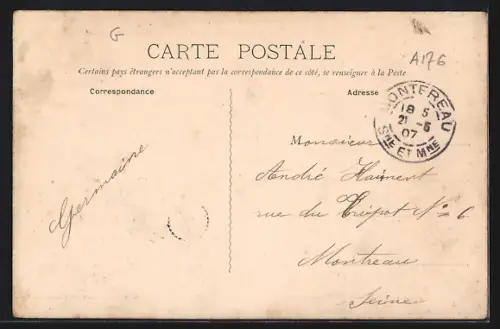 G
CARTE POSTALE
A176
Certains pays étrangers n'acceptant pas la correspondance de ce côté, se renseigner à la Poste
Correspondance
Adresse
MONTEREAU
18 5
21 -5
07
SNE ET MNE
Germaine
Monsieur
André
rue du Tripot No 6
Montreau
Seine